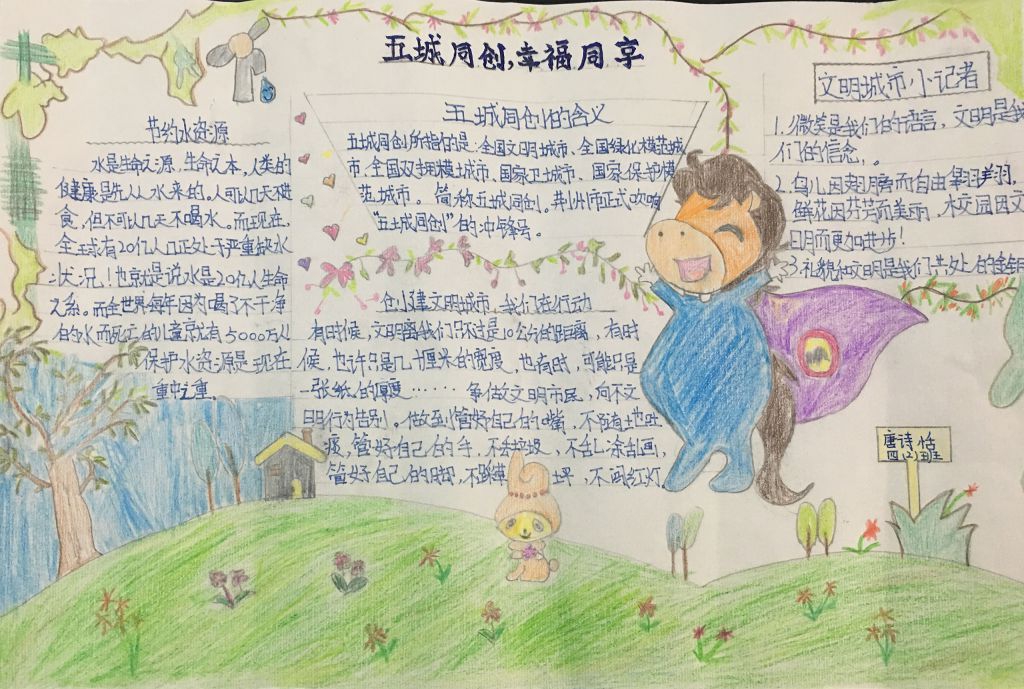 五城同创,幸福同享
节约水资源
水是生命之源,生命之本,人类的
健康是先从水来的。人可以几天不进
食,但不可以几天不喝水。而现在,
全球有20亿人口正处于严重缺水
状况!也就是说水是20亿人生命
之系。而全世界每年因为喝了不干净
的水而死亡的儿童就有5000万人
保护水资源是现在
重中之重。
五城同创的含义
五城同创所指的是:全国文明城市、全国绿化模范城
市、全国双拥模城市、国家卫生城市、国家保护模
范城市。简称五城同创。荆州市正式吹响
“五城同创”的冲锋号。
仓小建文明城市,我们在行动
有时候,文明离我们只不过是10公分的距离,有时
候,也许只是几十厘米的宽度,也有时,可能只是
一张纸的厚度……争做文明市民,向不文
明行为告别。做到管好自己的嘴,不随地吐
痰,管好自己的手,不丢垃圾、不乱涂乱画,
管好自己的脚,不踩草坪,不闯红灯。
文明城市小记者
1.微笑是我们的语言,文明是我
们的信念,。
2.鸟儿因翅膀而自由翱翔,
鲜花因芬芳而美丽,校园因文
明而更加进步!
3.礼貌和文明是我们共处的金钥
唐诗恬
四(2)班